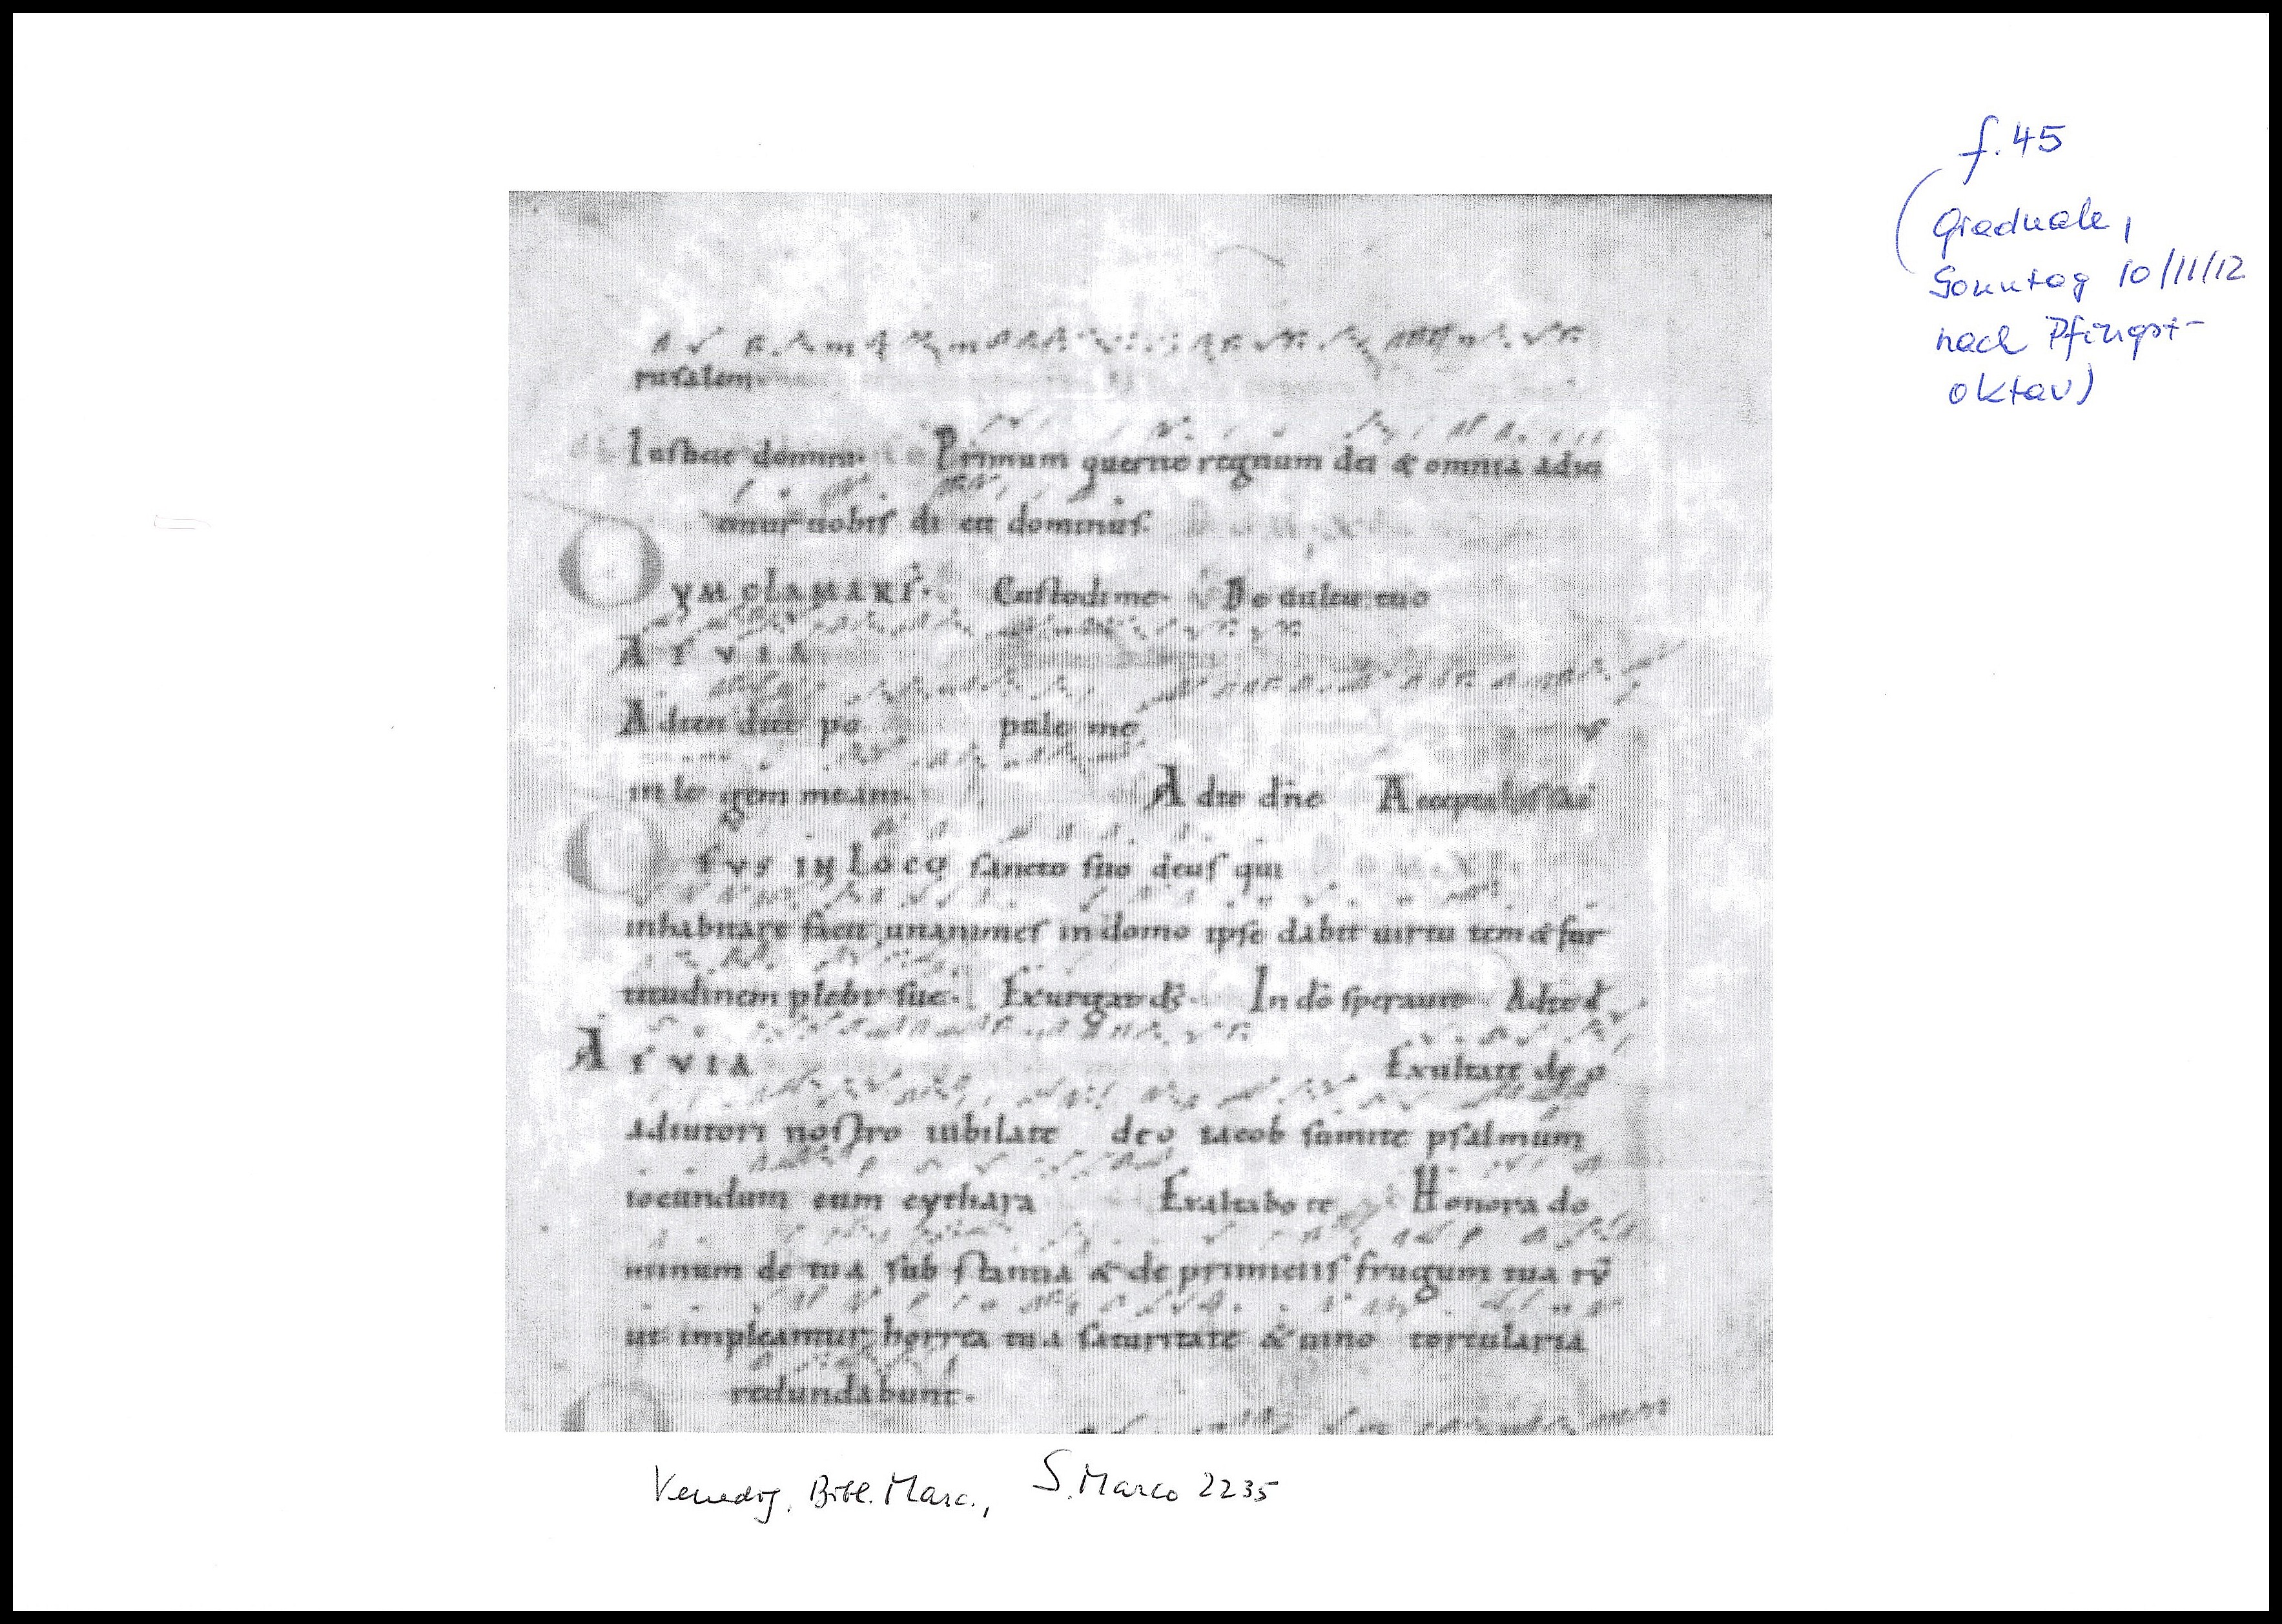 f. 45
(Graduale,
Sonntag 10/11/12
nach Pfingst-
oktav)
rusalem
Primum querite regnum dei & omnia adici
nobis di cit dominus.
YM CLAMAREƮ. Custodi me. 
A E V I A
Adten dite po pule me
in le gem meam. A dte dñe
E V S IN LOCO sancto suo deus qui
inhabitare facit unanimes in domo ipse dabit uirtu tem & for
titudinem plebis sue. Exurgat ds. In dō sperauit Ad te d
A E V I A Exultate de o
adiutori nostro iubilate deo iacob sumite psalmum
iocundum cum cythara Exaltabo te Honora do
minum de tua sub stantia & de primitiis frugum tua rū
ut impleantur horrea tua saturitate & uino torcularia
redundabunt.
Venedig, Bibl. Marc., S. Marco 2235